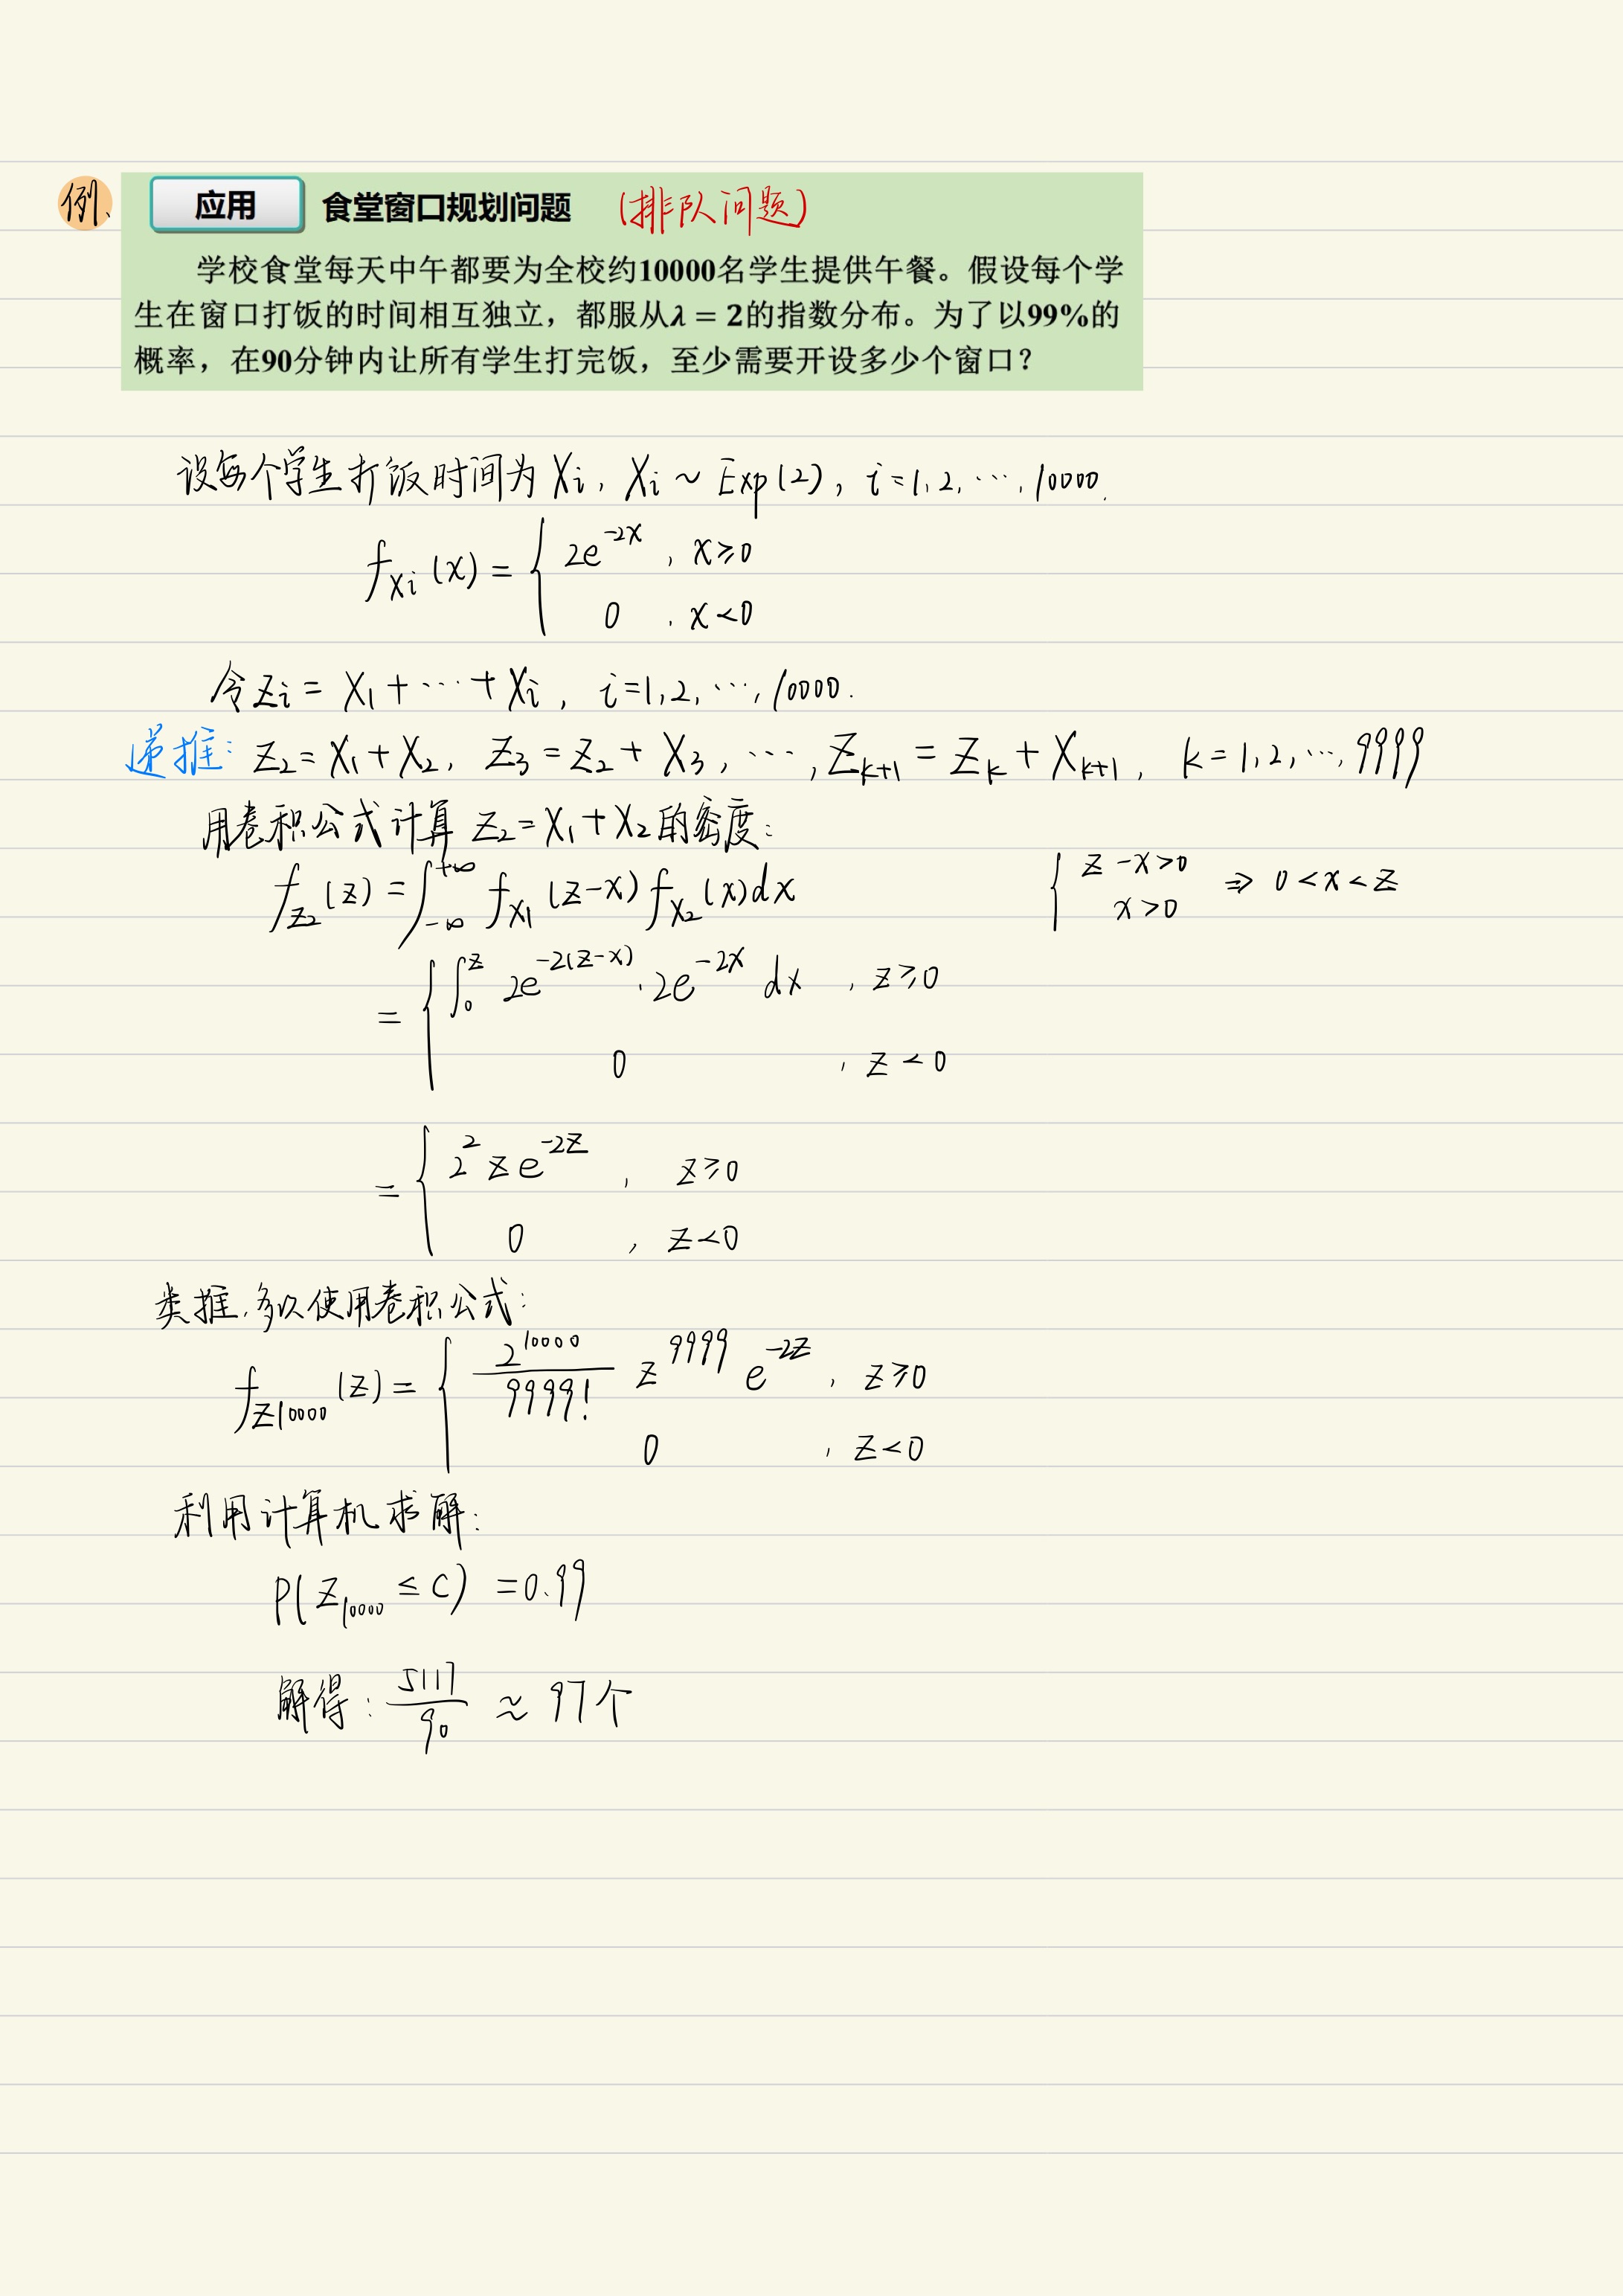 例、 应用 食堂窗口规划问题 (排队问题)
学校食堂每天中午都要为全校约10000名学生提供午餐。假设每个学
生在窗口打饭的时间相互独立，都服从λ = 2的指数分布。为了以99%的
概率，在90分钟内让所有学生打完饭，至少需要开设多少个窗口？
设每个学生打饭时间为 Xi, Xi ~ Exp(2), i=1,2,⋯,10000.
f_{Xi}(x) = { 2e^{-2x} , x≥0
0 , x<0
令 Zi = X₁+⋯+Xi, i=1,2,⋯,10000.
递推: Z₂=X₁+X₂, Z₃=Z₂+X₃, ⋯, Z_{k+1} = Z_k + X_{k+1}, k=1,2,⋯,9999
用卷积公式计算 Z₂=X₁+X₂ 的密度:
f_{Z₂}(z) = ∫_{-∞}^{+∞} f_{X₁}(z-x) f_{X₂}(x)dx { z-x>0
x>0 ⇒ 0<x<z
= { ∫_0^z 2e^{-2(z-x)}·2e^{-2x} dx , z≥0
0 , z<0
= { 2² z e^{-2z} , z≥0
0 , z<0
类推,多次使用卷积公式:
f_{Z10000}(z) = { \frac{2^{10000}}{9999!} z^{9999} e^{-2z} , z≥0
0 , z<0
利用计算机求解:
P(Z_{10000} ≤ C) = 0.99
解得: \frac{5117}{90} ≈ 97个